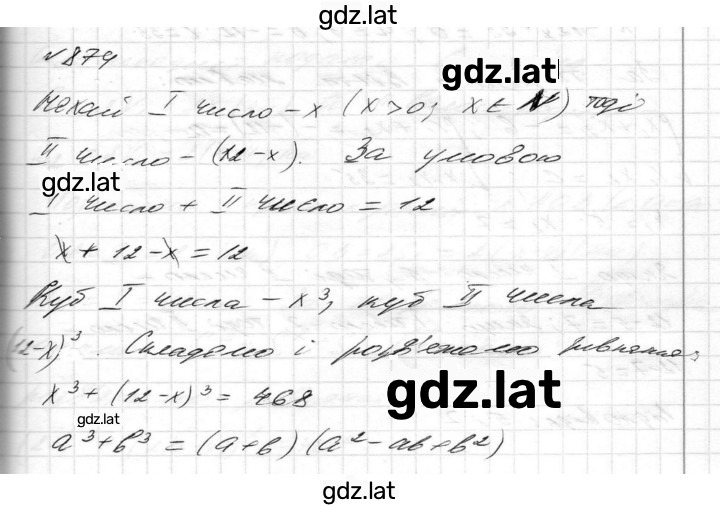 gdz.lat
№874
gdz.lat
Нехай I число – x (x>0; x∈N) тоді
II число – (12-x). За умовою
gdz.lat
I число + II число = 12
x + 12 - x = 12
Куб I числа – x³, куб II числа
(12-x)³. Складемо і розв'яжемо рівняння:
x³ + (12-x)³ = 468
gdz.lat
gdz.lat
a³+b³ = (a+b)(a²-ab+b²)
gdz.lat